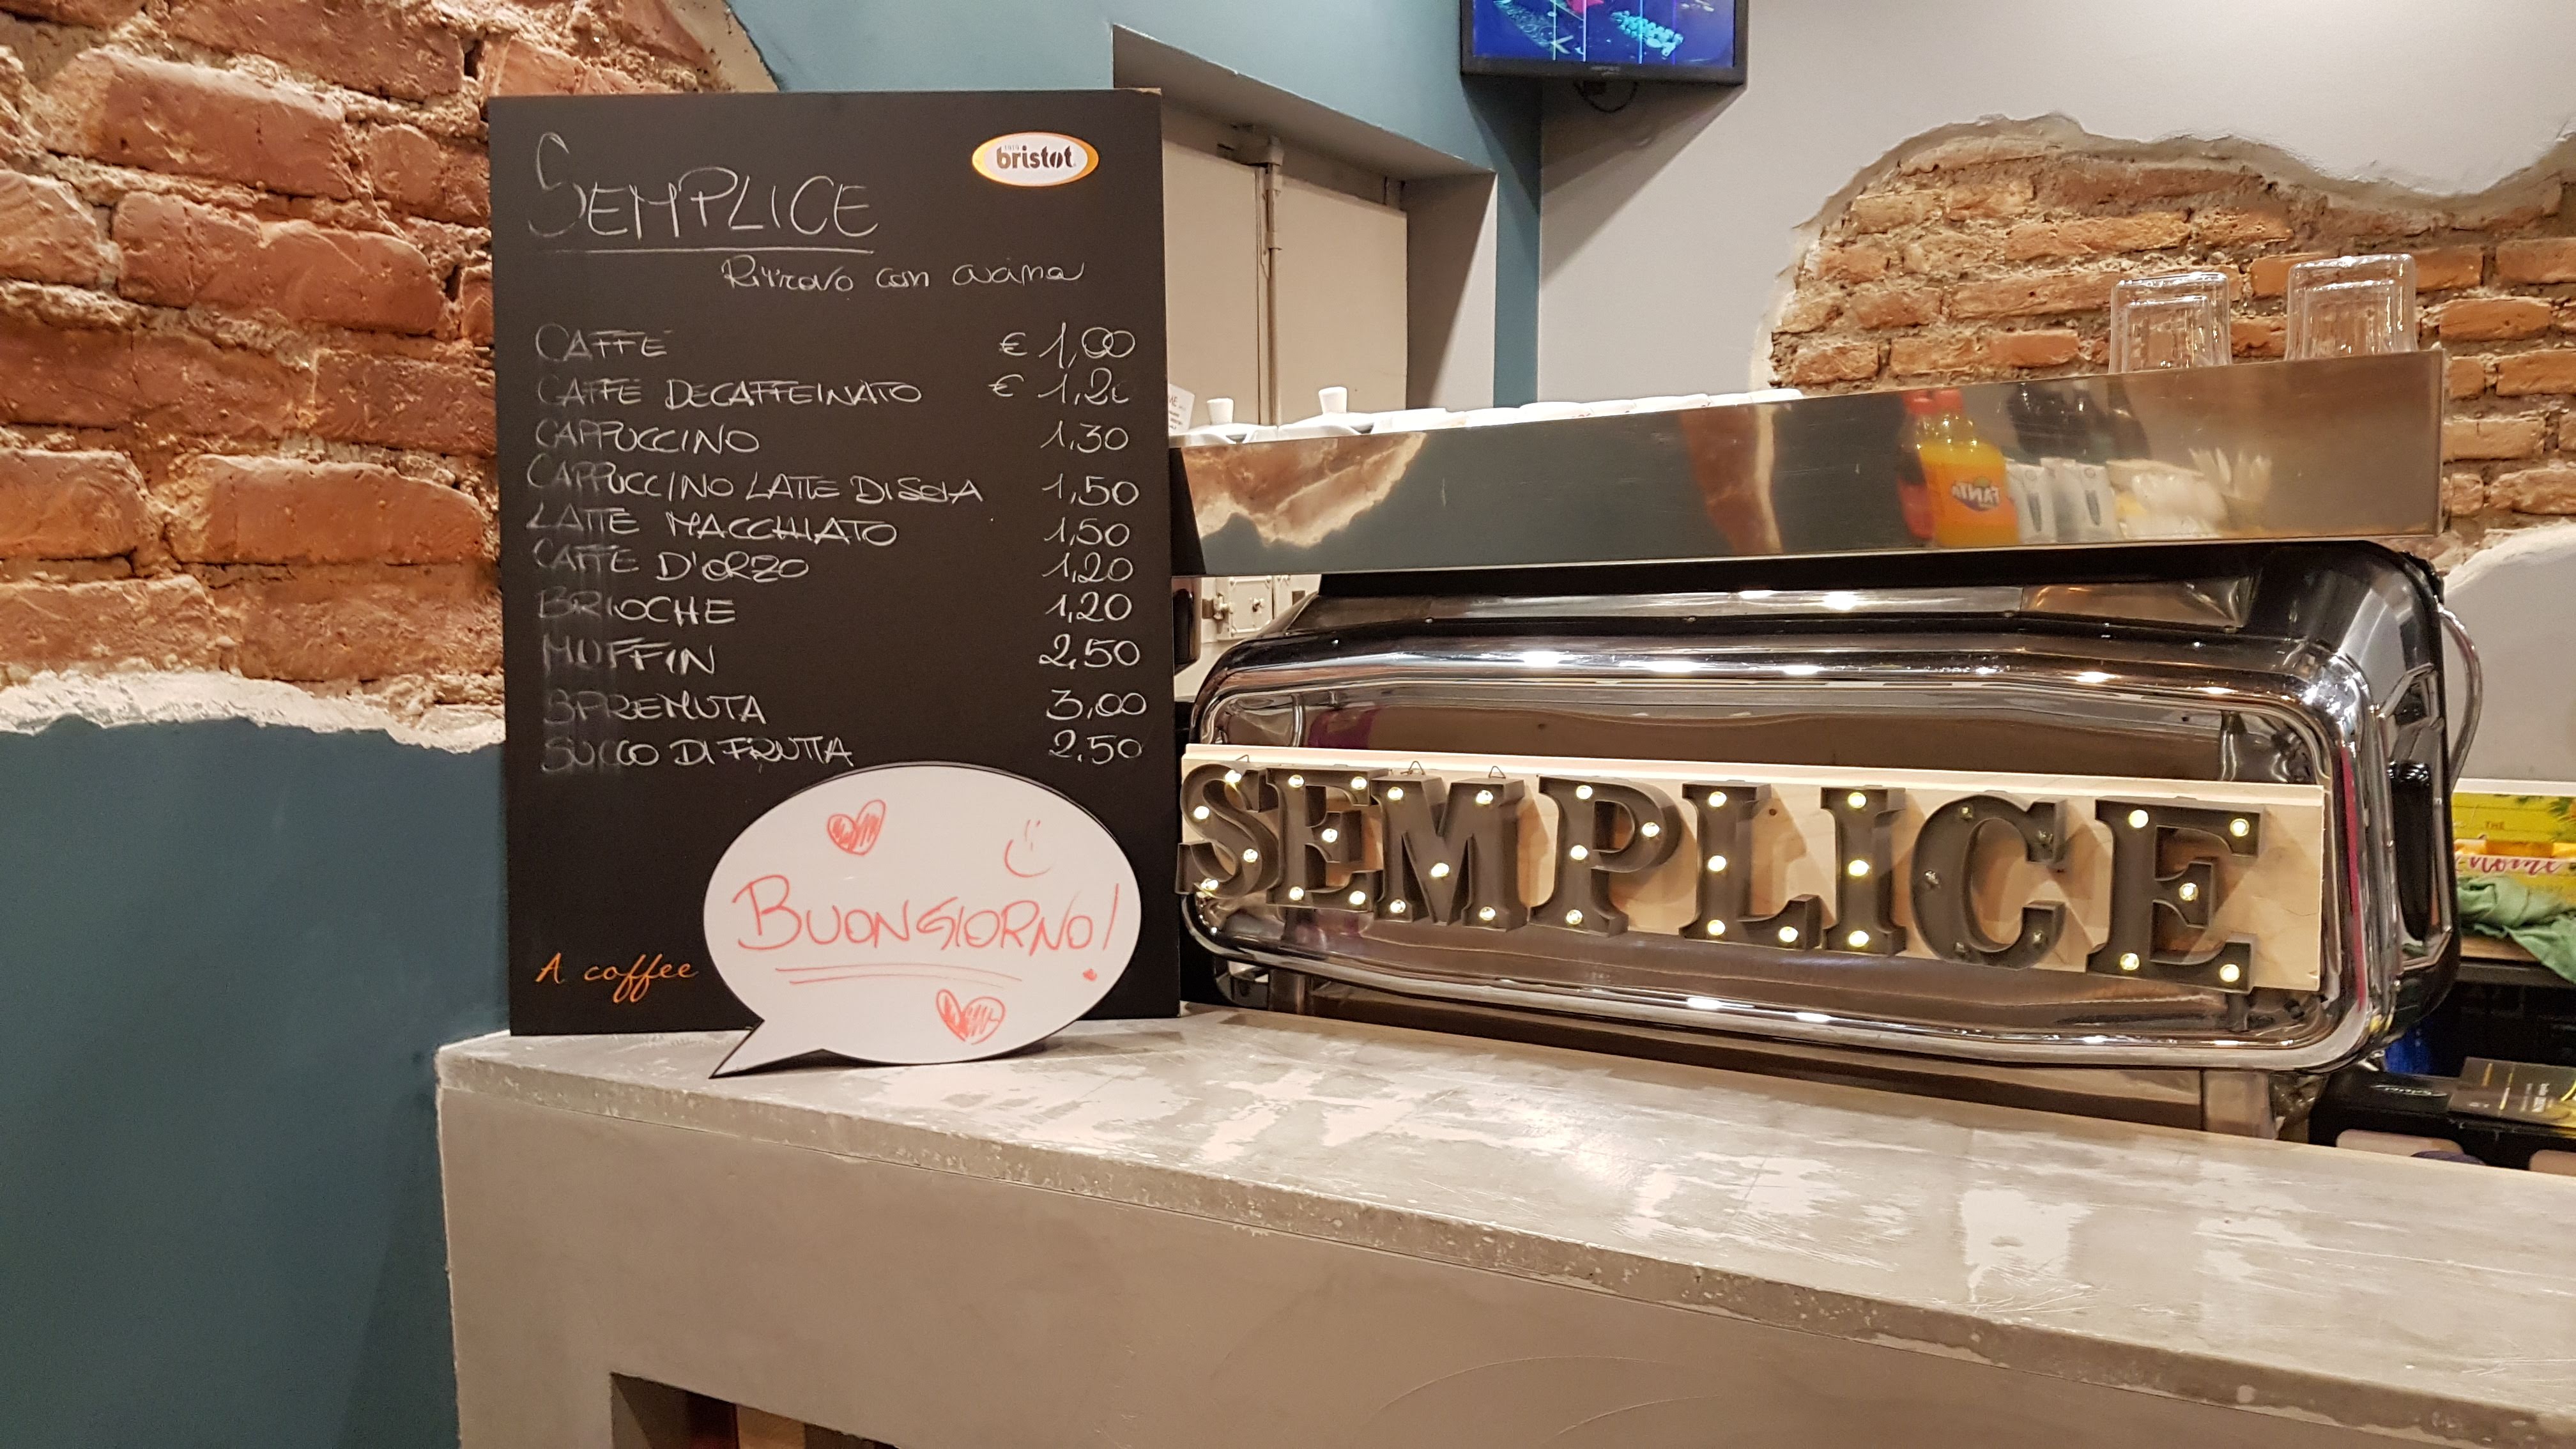 1919
bristot
SEMPLICE
Ritrovo con cucina
CAFFE' € 1,00
CAFFE DECAFFEINATO € 1,20
CAPPUCCINO 1,30
CAPPUCCINO LATTE DI SOIA 1,50
LATTE MACCHIATO 1,50
CAFFE D'ORZO 1,20
BRIOCHE 1,20
MUFFIN 2,50
SPREMUTA 3,00
SUCCO DI FRUTTA 2,50
BUONGIORNO!
A coffee
FANTA
SEMPLICE
THE